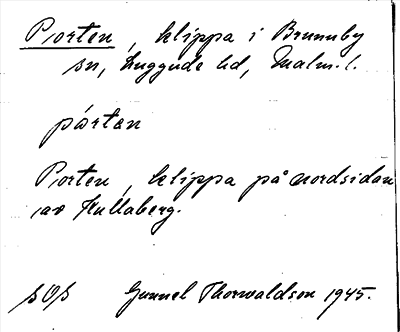 Porten, klippa i Brunnby
sn, Luggude hd, Malm. l.
pårtən
Porten, klippa på nordsidan
av Kullaberg.
SOS Gunnel Thorwaldson 1945.